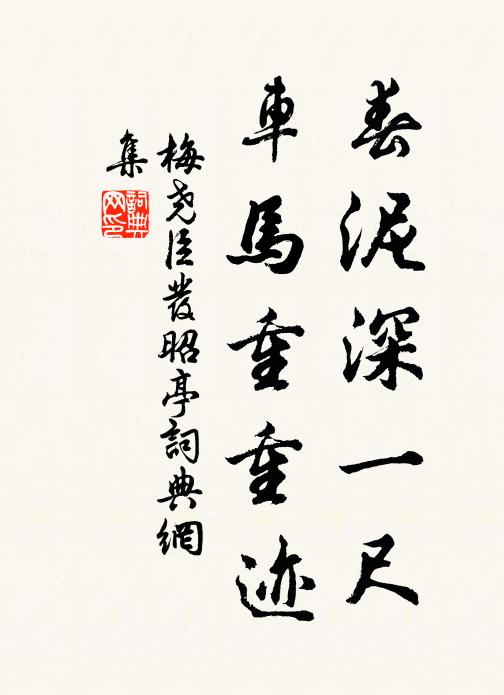 春泥深一尺
車馬重重迹
梅堯臣發昭亭詞典網
集
詞典网印